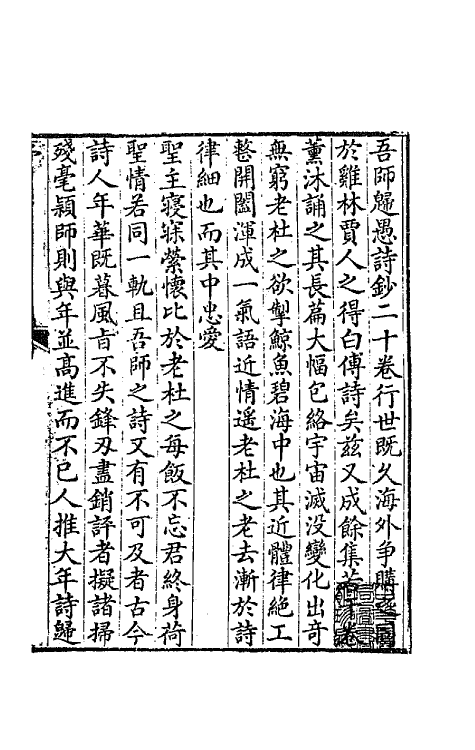 吾師歸愚詩鈔二十卷行世既久海外爭購
於雞林賈人之得白傅詩矣茲又成餘集若
薰沐誦之其長篇大幅包絡宇宙滅没變化出奇
無窮老杜之欲掣鯨魚碧海中也其近體律絕工
整開闔渾成一氣語近情遥老杜之老去漸於詩
律細也而其中忠愛
聖主寢寐縈懷比於老杜之每飯不忘君終身荷
聖情若同一軌且吾師之詩又有不可及者古今
詩人年華既暮風旨不失鋒刃盡銷評者擬諸掃
殘毫穎師則與年並高進而不已人推大年詩歸